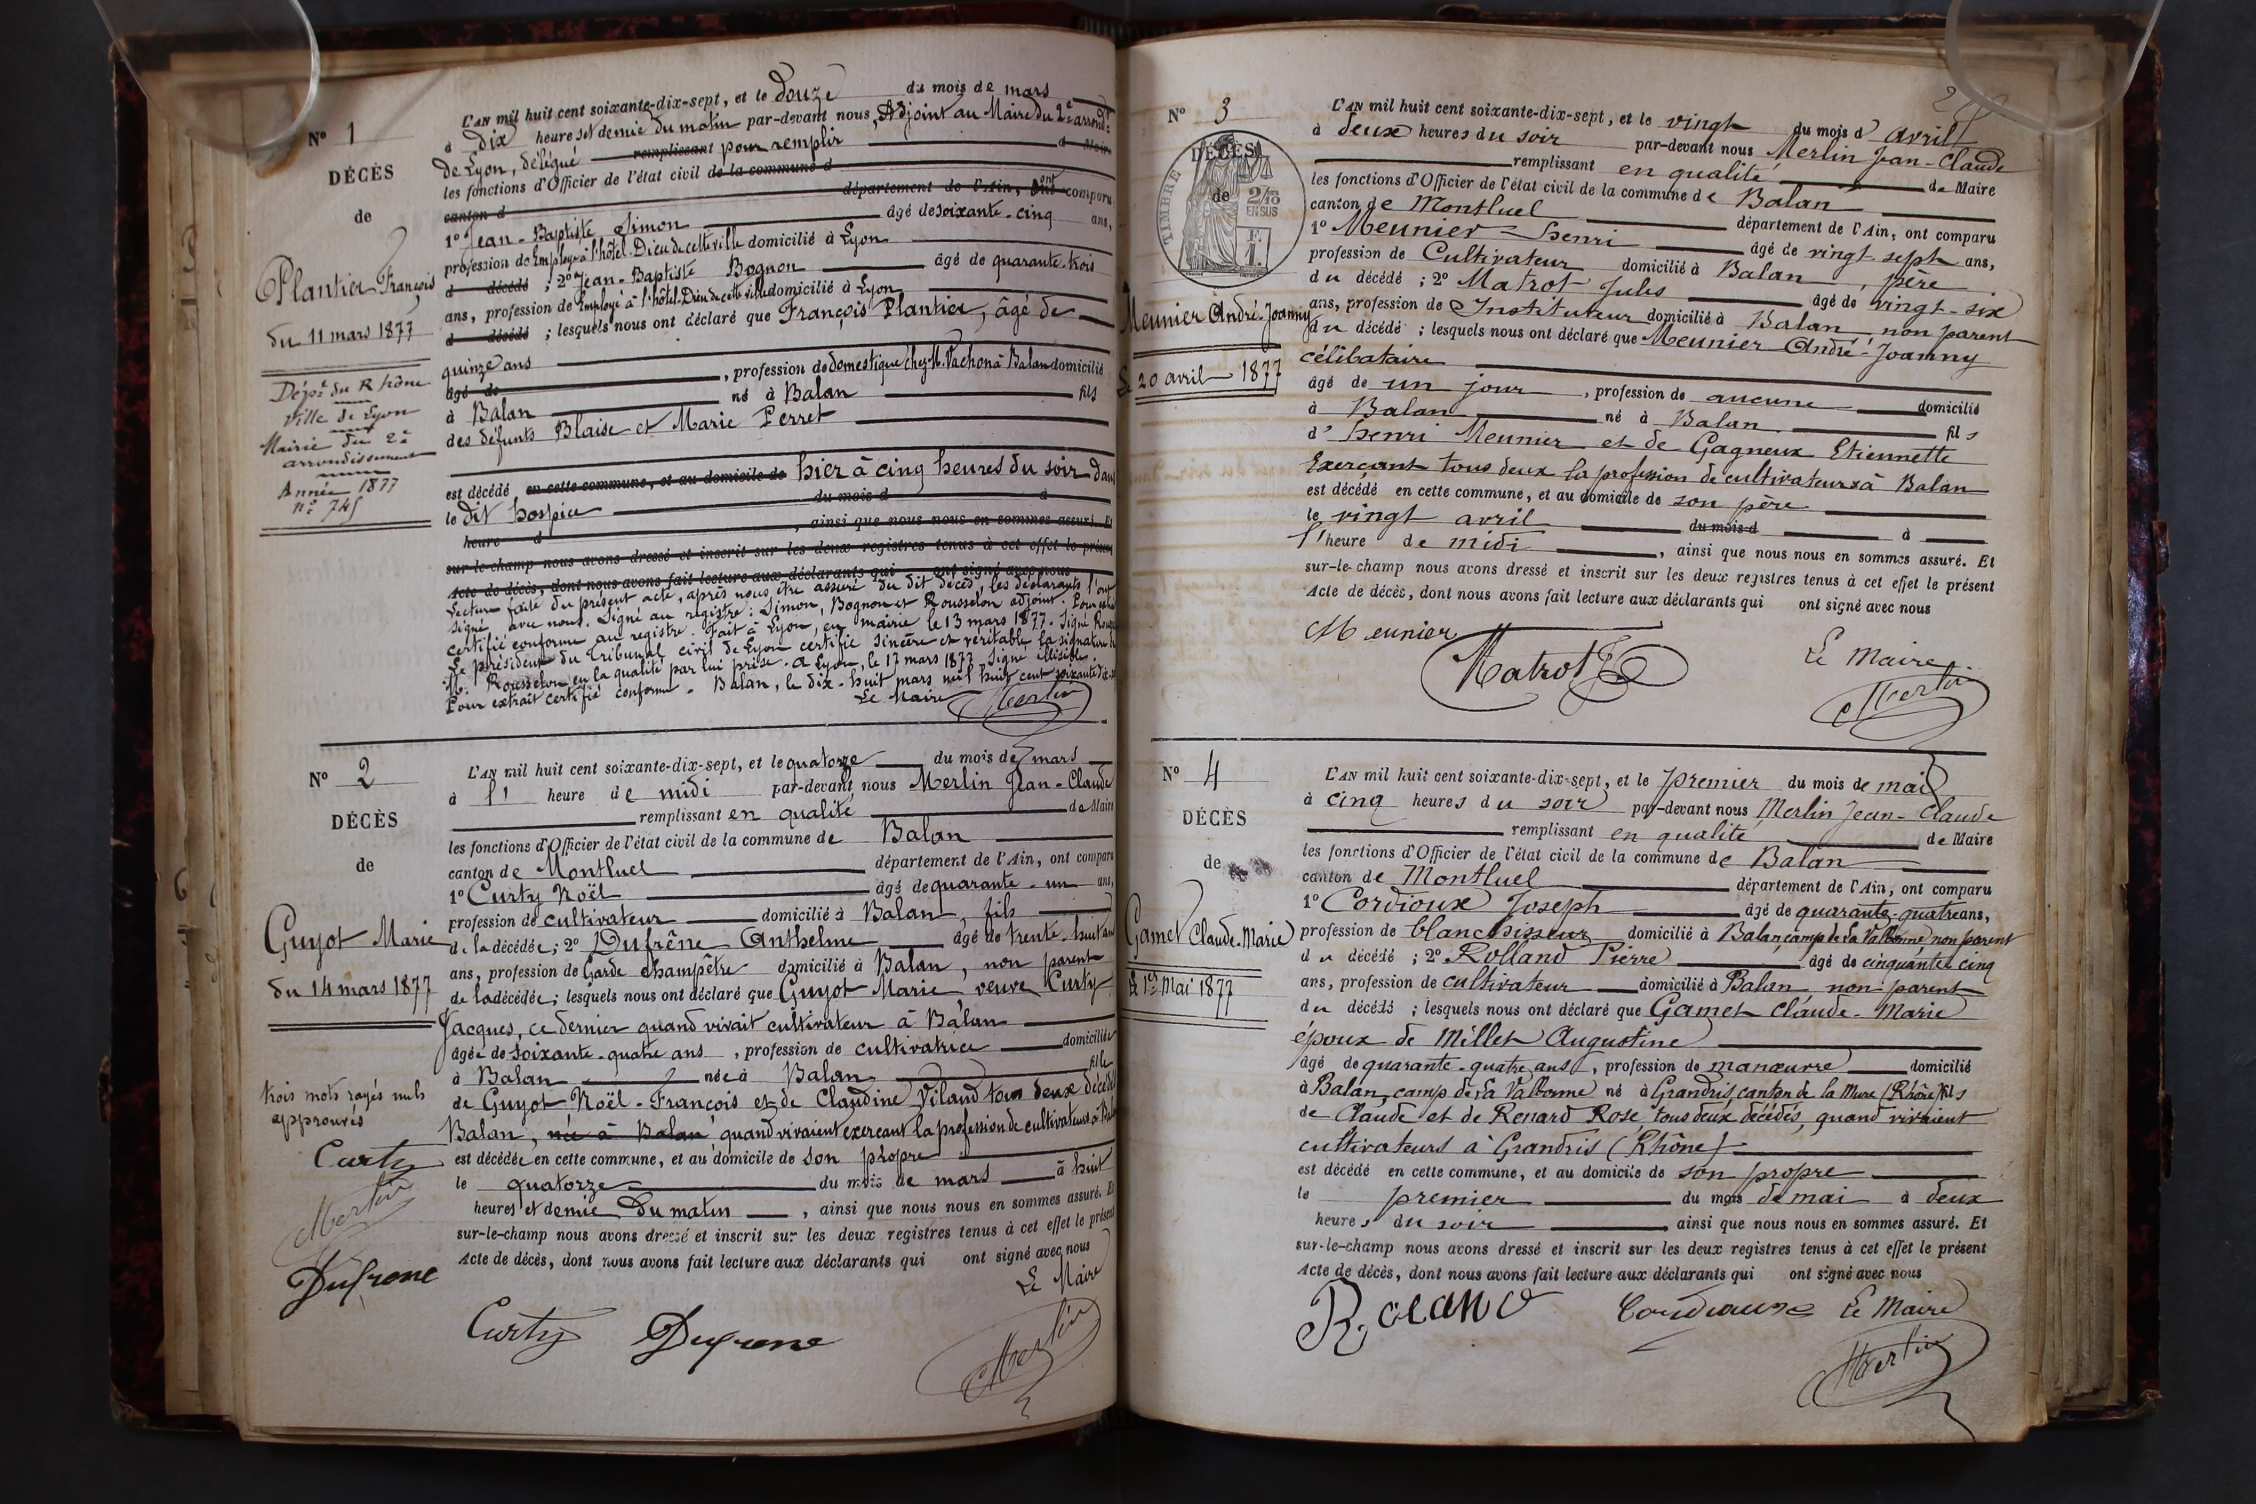 N° 1
DÉCÈS
de
Plantier François
du 11 mars 1877
Dép.t du Rhône
Ville de Lyon
Mairie du 2e
arrondissement
Année 1877
n° 745
L'AN mil huit cent soixante-dix-sept, et le douze du mois de mars
à dix heures et demie du matin par-devant nous, Adjoint au Maire du 2e arrondt
de Lyon, délégué remplissant pour remplir d Maire
les fonctions d'Officier de l'état civil de la commune d
canton d département de l'Ain, ont comparu
1° Jean-Baptiste Simon âgé de soixante-cinq ans,
profession de Employé à l'hôtel-Dieu de cette ville domicilié à Lyon
d décédé ; 2° Jean-Baptiste Bognon âgé de quarante-trois
ans, profession de Employé à l'hôtel-Dieu de cette ville domicilié à Lyon
d décédé ; lesquels nous ont déclaré que François Plantier, âgé de
quinze ans
âgé de , profession de domestique chez M. Vachon à Balan domicilié
à Balan né à Balan fils
des défunts Blaise et Marie Perret
est décédé en cette commune, et au domicile de hier à cinq heures du soir dans
le dit hospice du mois d à
heure d , ainsi que nous nous en sommes assuré. Et
sur-le-champ nous avons dressé et inscrit sur les deux registres tenus à cet effet le présent
Acte de décès, dont nous avons fait lecture aux déclarants qui ont signé avec nous
Lecture faite du présent acte, après nous être assuré du dit décès, les déclarants l'ont
signé avec nous. Signé au registre : Simon, Bognon et Rousselon adjoint. Pour
certifié conforme au registre. Fait à Lyon, en mairie le 13 mars 1877. Signé
Le président du Tribunal civil de Lyon certifie sincère et véritable la signature de
M. Rousselon en la qualité par lui prise. A Lyon, le 17 mars 1877. Signé illisible.
Pour extrait certifié conforme. Balan, le dix-huit mars mil huit cent soixante dix-sept
Le Maire Merlin
N° 2
DÉCÈS
de
Guyot Marie
du 14 mars 1877
trois mots rayés nuls
approuvés
Curty
Merlin
Dufrene
L'AN mil huit cent soixante-dix-sept, et le quatorze du mois de mars
à l' heure de midi par-devant nous Merlin Jean-Claude
remplissant en qualité de Maire
les fonctions d'Officier de l'état civil de la commune de Balan
canton de Montluel département de l'Ain, ont comparu
1° Curty Noël âgé de quarante-un ans,
profession de cultivateur domicilié à Balan, fils
de la décédée ; 2° Dufrêne Anthelme âgé de trente-huit ans
ans, profession de Garde champêtre domicilié à Balan, non parent
de la décédée ; lesquels nous ont déclaré que Guyot Marie veuve Curty
Jacques, ce dernier quand vivait cultivateur à Balan
âgée de soixante-quatre ans , profession de cultivatrice domiciliée
à Balan née à Balan fille
de Guyot Noël-François et de Claudine Viland tous deux décédés
Balan, née à Balan quand vivaient exerçant la profession de cultivateurs à
est décédée en cette commune, et au domicile de son propre
le quatorze du mois de mars à huit
heures et demie du matin , ainsi que nous nous en sommes assuré. Et
sur-le-champ nous avons dressé et inscrit sur les deux registres tenus à cet effet le présent
Acte de décès, dont nous avons fait lecture aux déclarants qui ont signé avec nous
Le Maire
Curty Dufrene Merlin
N° 3
DÉCÈS
de
TIMBRE
2/10
EN SUS
F.
1.
Meunier André-Joanny
Le 20 avril 1877
L'AN mil huit cent soixante-dix-sept, et le vingt du mois d' avril
à deux heures du soir par-devant nous Merlin Jean-Claude
remplissant en qualité de Maire
les fonctions d'Officier de l'état civil de la commune de Balan
canton de Montluel département de l'Ain, ont comparu
1° Meunier Henri âgé de vingt-sept ans,
profession de Cultivateur domicilié à Balan, père
du décédé ; 2° Matrot Jules âgé de vingt-six
ans, profession de Instituteur domicilié à Balan non parent
du décédé ; lesquels nous ont déclaré que Meunier André-Joanny
célibataire
âgé de un jour , profession de aucune domicilié
à Balan né à Balan fils
d' Henri Meunier et de Gagneux Etiennette
Exerçant tous deux la profession de cultivateurs à Balan
est décédé en cette commune, et au domicile de son père
le vingt avril du mois d à
l'heure de midi , ainsi que nous nous en sommes assuré. Et
sur-le-champ nous avons dressé et inscrit sur les deux registres tenus à cet effet le présent
Acte de décès, dont nous avons fait lecture aux déclarants qui ont signé avec nous
Meunier
Matrot J Le Maire
Merlin
N° 4
DÉCÈS
de
Gamet Claude-Marie
Le 1er Mai 1877
L'AN mil huit cent soixante-dix-sept, et le premier du mois de mai
à cinq heures du soir par-devant nous Merlin Jean-Claude
remplissant en qualité de Maire
les fonctions d'Officier de l'état civil de la commune de Balan
canton de Montluel département de l'Ain, ont comparu
1° Cordioux Joseph âgé de quarante-quatre ans,
profession de blanchisseur domicilié à Balan, camp de La Valbonne, non parent
du décédé ; 2° Rolland Pierre âgé de cinquante cinq
ans, profession de cultivateur domicilié à Balan non parent
du décédé ; lesquels nous ont déclaré que Gamet Claude-Marie
époux de Millet Augustine
âgé de quarante-quatre ans , profession de manœuvre domicilié
à Balan, camp de La Valbonne né à Grandris, canton de la Mure (Rhône) fils
de Claude et de Renard Rose, tous deux décédés, quand vivaient
cultivateurs à Grandris (Rhône)
est décédé en cette commune, et au domicile de son propre
le premier du mois de mai à deux
heures du soir , ainsi que nous nous en sommes assuré. Et
sur-le-champ nous avons dressé et inscrit sur les deux registres tenus à cet effet le présent
Acte de décès, dont nous avons fait lecture aux déclarants qui ont signé avec nous
Le Maire
Merlin